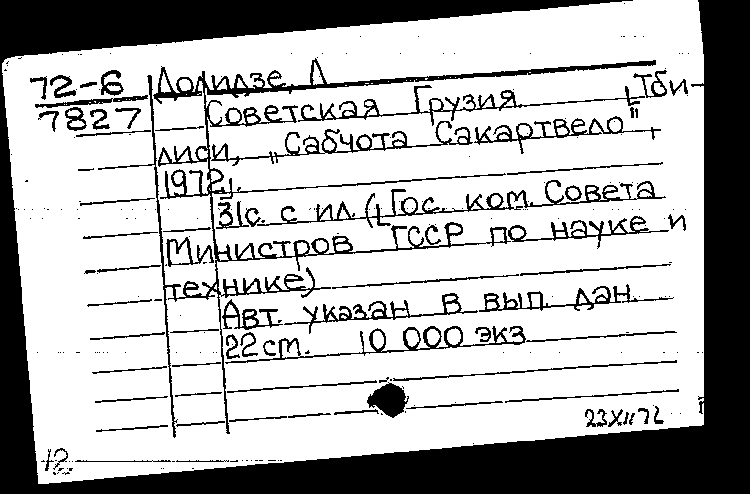 72-6 Долидзе, Л
7827 Советская Грузия. [Тби-
лиси, „Сабчота Сакартвело",
1972].
31с. с ил. ([Гос. ком. Совета
Министров ГССР по науке и
технике)
Авт. указан в вып. дан.
22 ст. 10 000 экз
23XII72
12